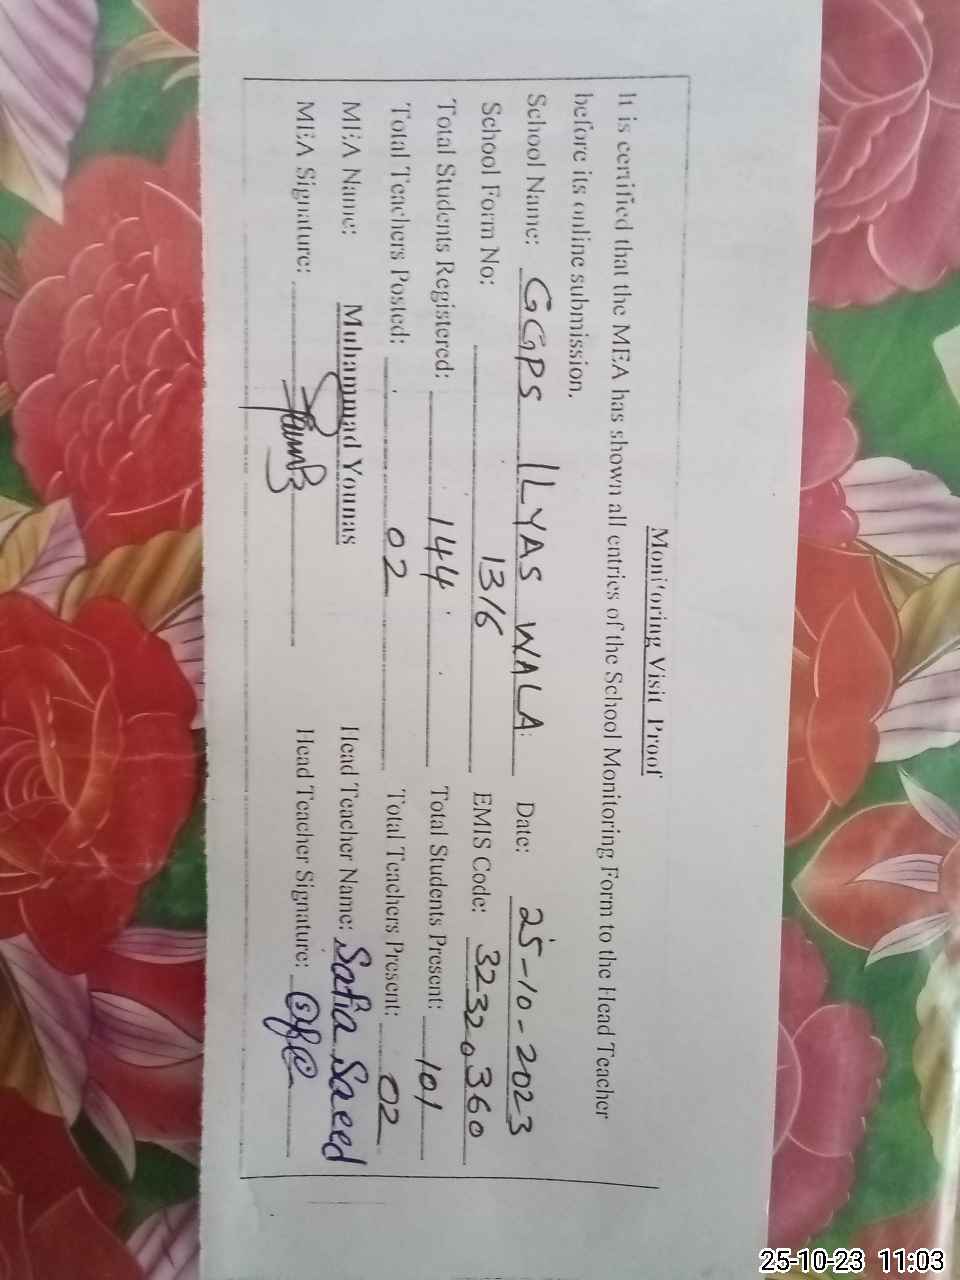 Monitoring Visit Proof
It is certified that the MEA has shown all entries of the School Monitoring Form to the Head Teacher
before its online submission.
School Name: GGPS ILYAS WALA Date: 25-10-2023
School Form No: 1316 EMIS Code: 32320360
Total Students Registered: 144 Total Students Present: 101
Total Teachers Posted: 02 Total Teachers Present: 02
MEA Name: Muhammad Younas Head Teacher Name: Safia Saeed
MEA Signature: Head Teacher Signature:
25-10-23 11:03